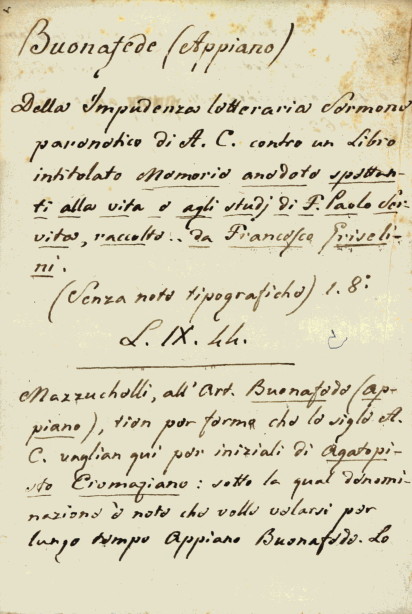 Buonafede (Appiano)
Della Impudenza letteraria Sermone
parenetico di A. C. contro un Libro
intitolato Memorie anedote spettan-
ti alla vita e agli studj di F. Paolo Ser-
vita, raccolte.. da Francesco Griseli-
ni.
(Senza note tipografiche) 1. 8.°
L. IX. 44.
Mazzuchelli, all'Art. Buonafede (Ap-
piano), tien per fermo che le sigle A.
C. vaglian qui per iniziali di Agatopi-
sto Cromaziano: sotto la qual denomi-
nazione è noto che volle celarsi per
lungo tempo Appiano Buonafede. Lo